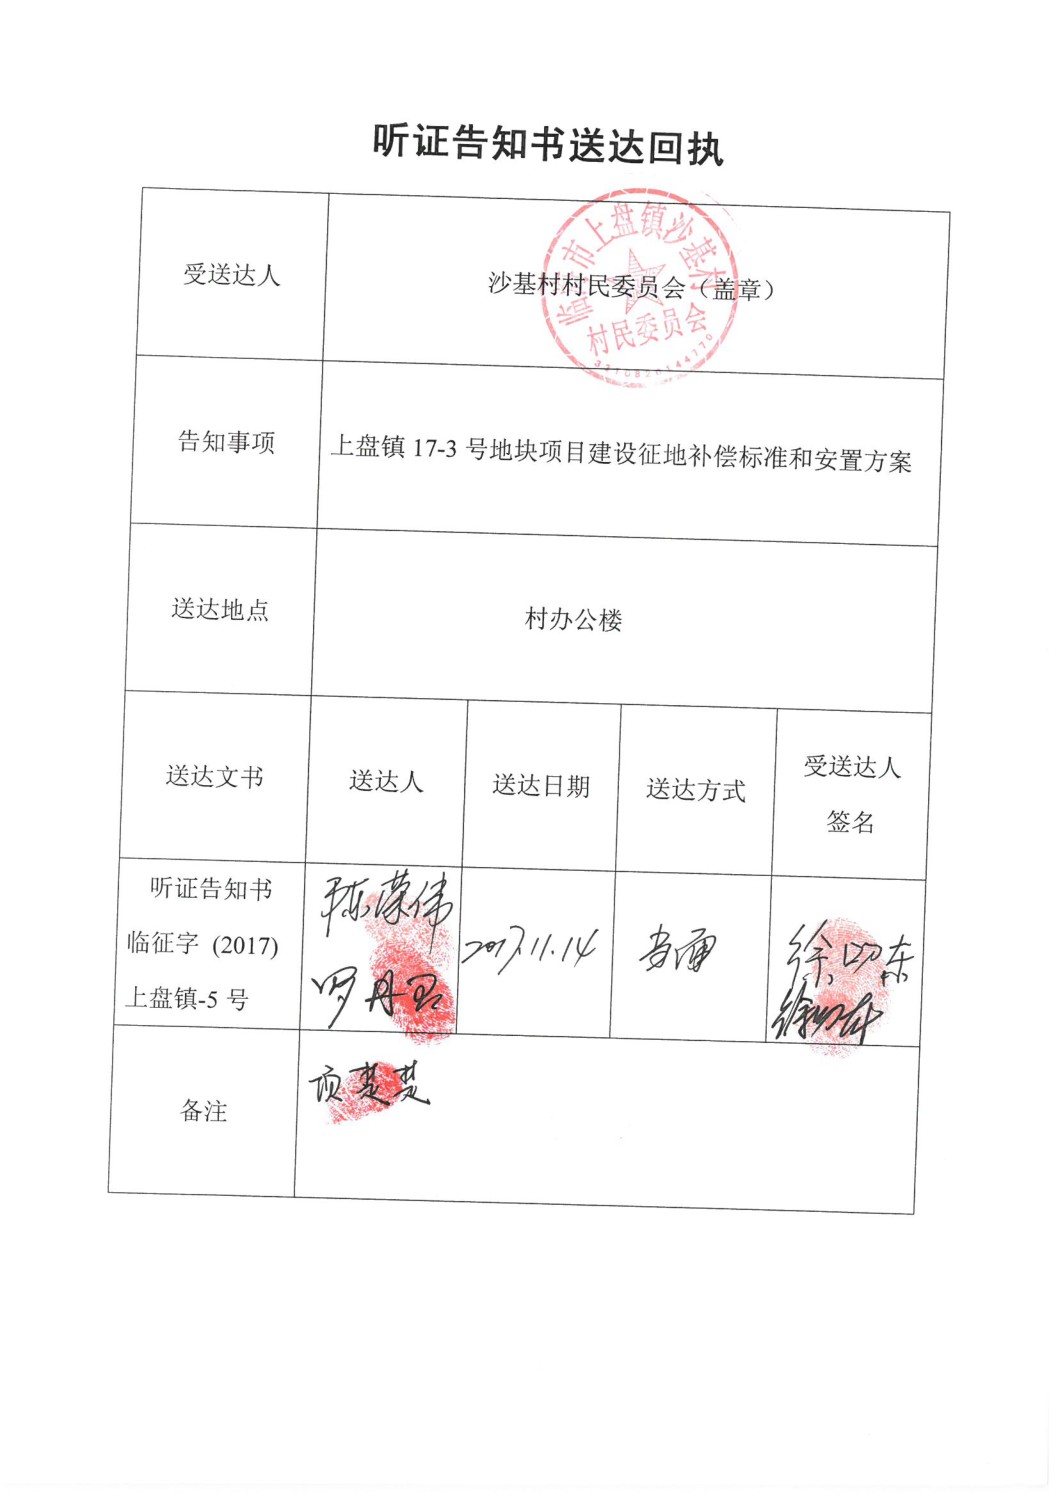 听证告知书送达回执
受送达人
沙基村村民委员会（盖章）
临海市上盘镇沙基村
村民委员会
告知事项
上盘镇 17-3 号地块项目建设征地补偿标准和安置方案
送达地点
村办公楼
送达文书
送达人
送达日期
送达方式
受送达人
签名
听证告知书
临征字 (2017)
上盘镇-5 号
陈荣伟
罗丹
2017.11.14
当面
徐
东
备注
项楚楚